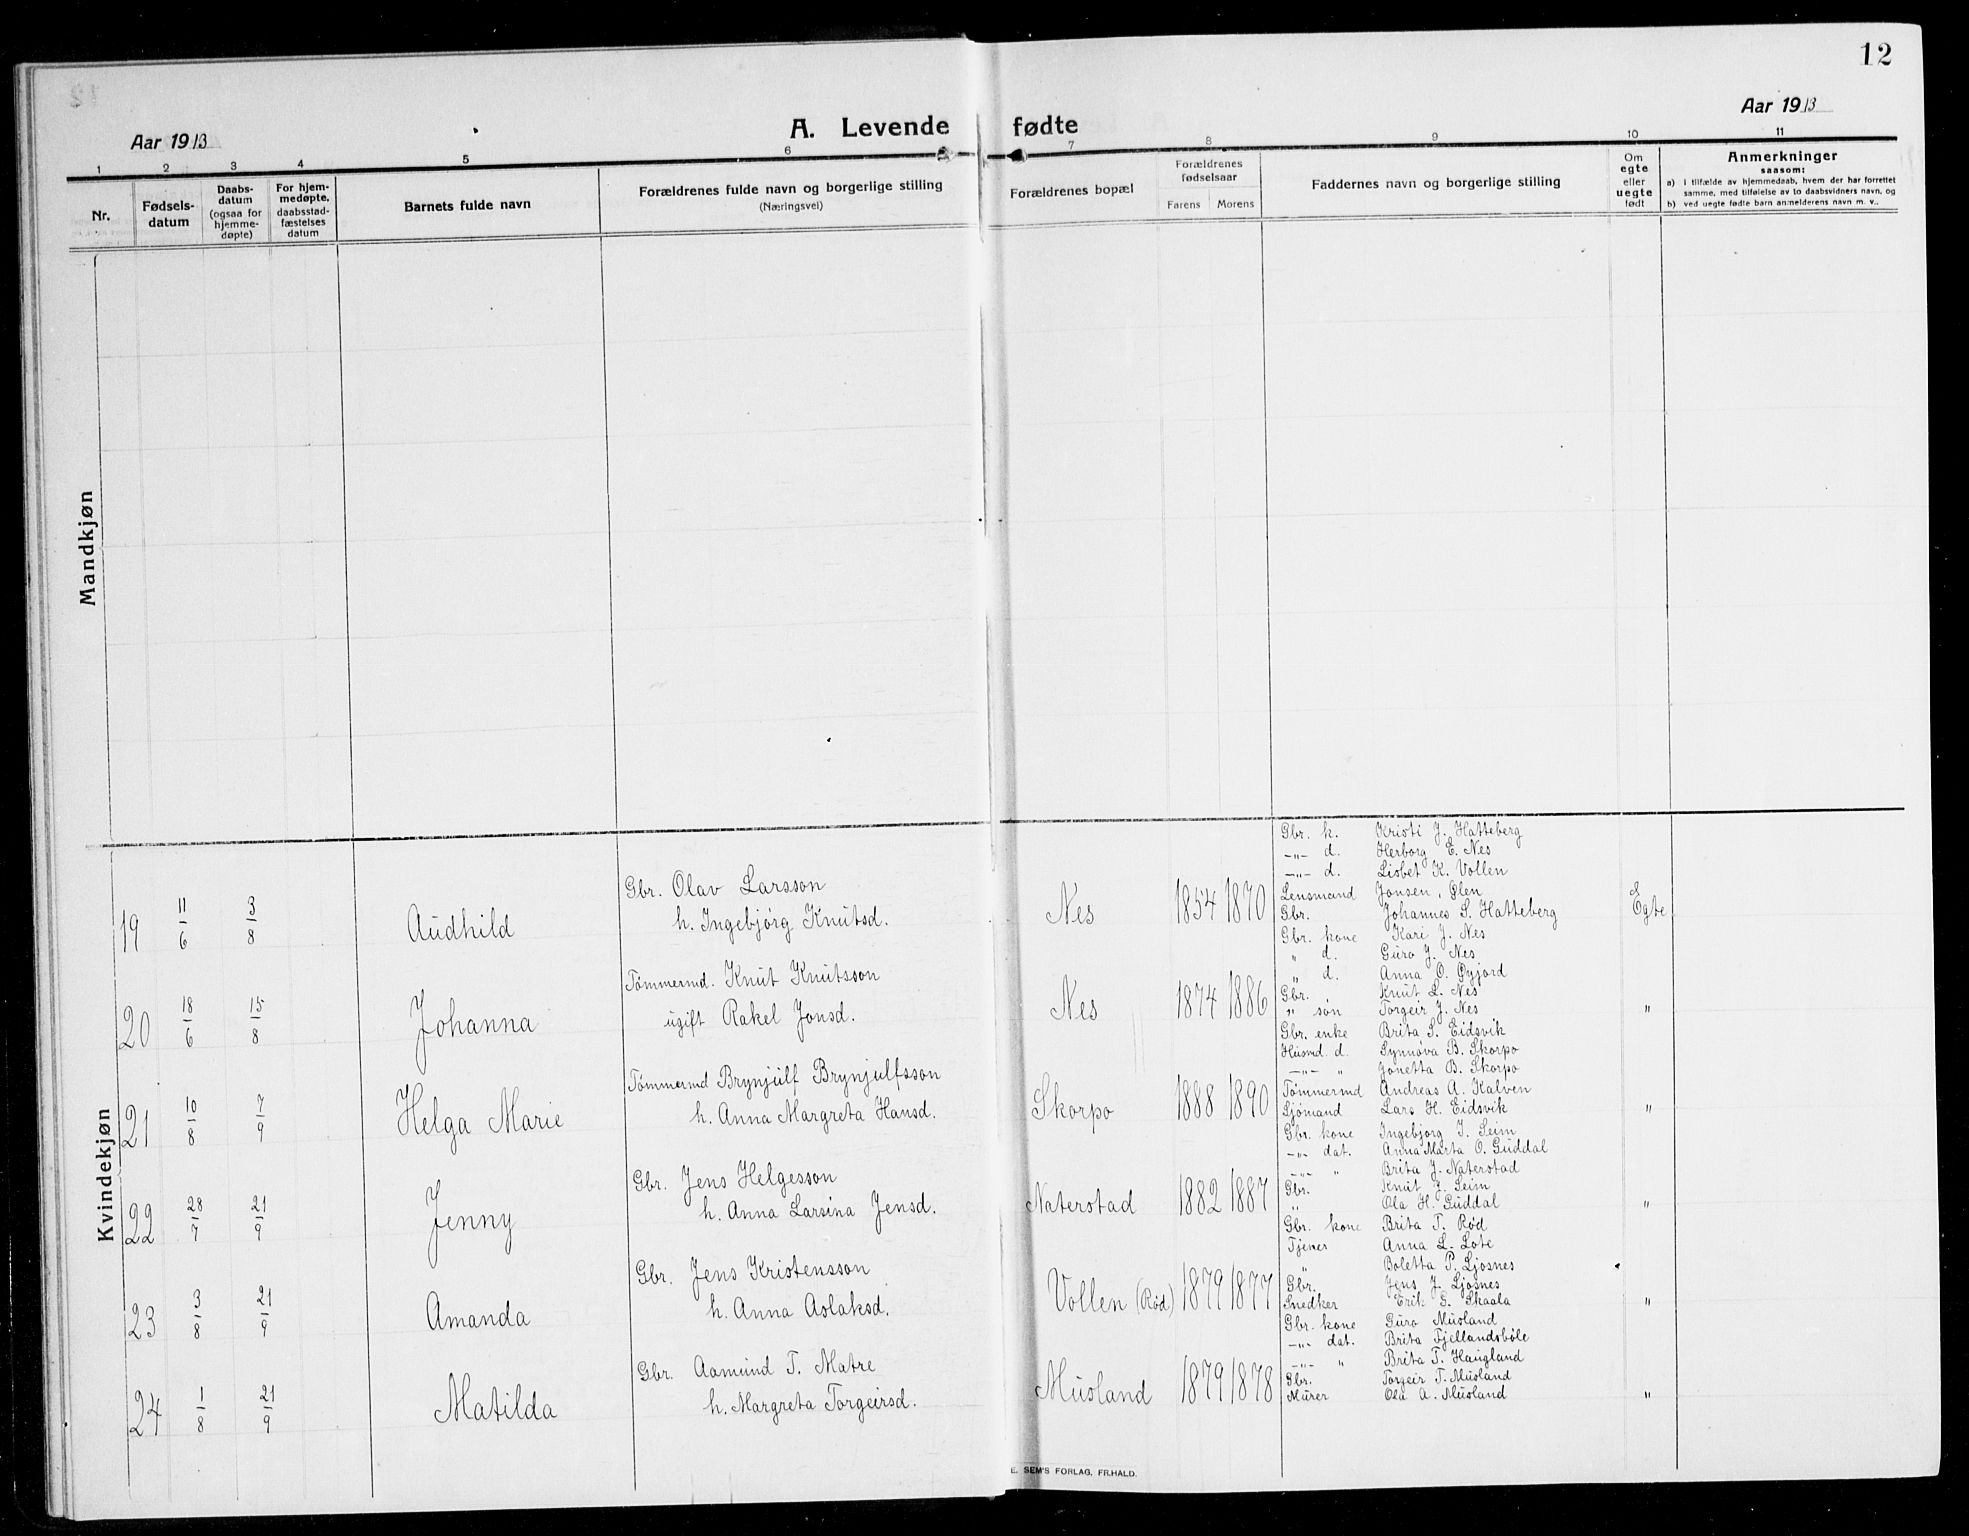 12
Aar 1913
A. Levende fødte
Aar 1913
1 2 3 4 5 6 7 8 9 10 11
Nr.
Fødselsdatum
Daabsdatum (ogsaa for hjemmedøpte)
For hjemmedøpte, daabsstadfæstelses datum
Barnets fulde navn
Forældrenes fulde navn og borgerlige stilling
(Næringsvei)
Forældrenes bopæl
Forældrenes fødselsaar
Farens Morens
Faddernes navn og borgerlige stilling
Om egte eller uegte født
Anmerkninger
saasom:
a) i tilfælde av hjemmedaab, hvem der har forrettet
samme, med tilføielse av to daabsvidners navn, og
b) ved uegte fødte barn anmelderens navn m. v..
Mandkjøn
Kvindekjøn
19 11/6 3/8 Audhild
Gbr. Olav Larsson
h. Ingebjörg Knutsd.
Nes 1854 1870
Gbr. k. Kristi J. Hatteberg
-„- d. Herborg E. Nes
-„- d. Lisbet K. Vollen
Lensmand Jonsen, Ølen
Gbr. Johannes S. Hatteberg
Egte
20 18/6 15/8 Johanna
Tömmermd. Knut Knutsson
ugift Rakel Jonsd.
Nes 1874 1886
Gbr. kone Kari J. Nes
„ d. Guro J. Nes
„ d. Anna O. Øyjord
Gbr. Knut L. Nes
„ sön Torgeir J. Nes
„
21 10/8 7/9 Helga Marie
Tömmermd Brynjulf Brynjulfsson
h. Anna Margreta Hansd.
Skorpo 1888 1890
Gbr. enke Brita S. Eidsvik
Husmd. d. Synnöva B. Skorpo
-„- „ Jonetta B. Skorpo
Tömmermd Andreas A. Kalven
Sjömand Lars H. Eidsvik
„
22 28/7 21/9 Jenny
Gbr. Jens Helgesson
h. Anna Larsina Jensd.
Naterstad 1882 1887
Gbr. kone Ingebjorg I. Seim
-„- dat. Anna Marta O. Guddal
-„- „ Brita J. Naterstad
Gbr. Knut J. Seim
„ Ola H. Guddal
„
23 3/8 21/9 Amanda
Gbr. Jens Kristensson
h. Anna Aslaksd.
Vollen (Rød) 1879 1877
Gbr. kone Brita T. Rød
Tjenes Anna L. Lote
„ Boletta P. Ljosnes
Gbr. Jens J. Ljosnes
Snedker Erik G. Skaala
„
24 1/8 21/9 Matilda
Gbr. Aamund T. Matre
h. Margreta Torgeirsd.
Musland 1879 1878
Gbr. kone Guro Musland
-„- dat. Brita Fjellandsböle
-„- „ Brita T. Haugland
Gbr. Torgeir T. Musland
Murer Ola A. Musland
„
E. SEM'S FORLAG, FR.HALD.